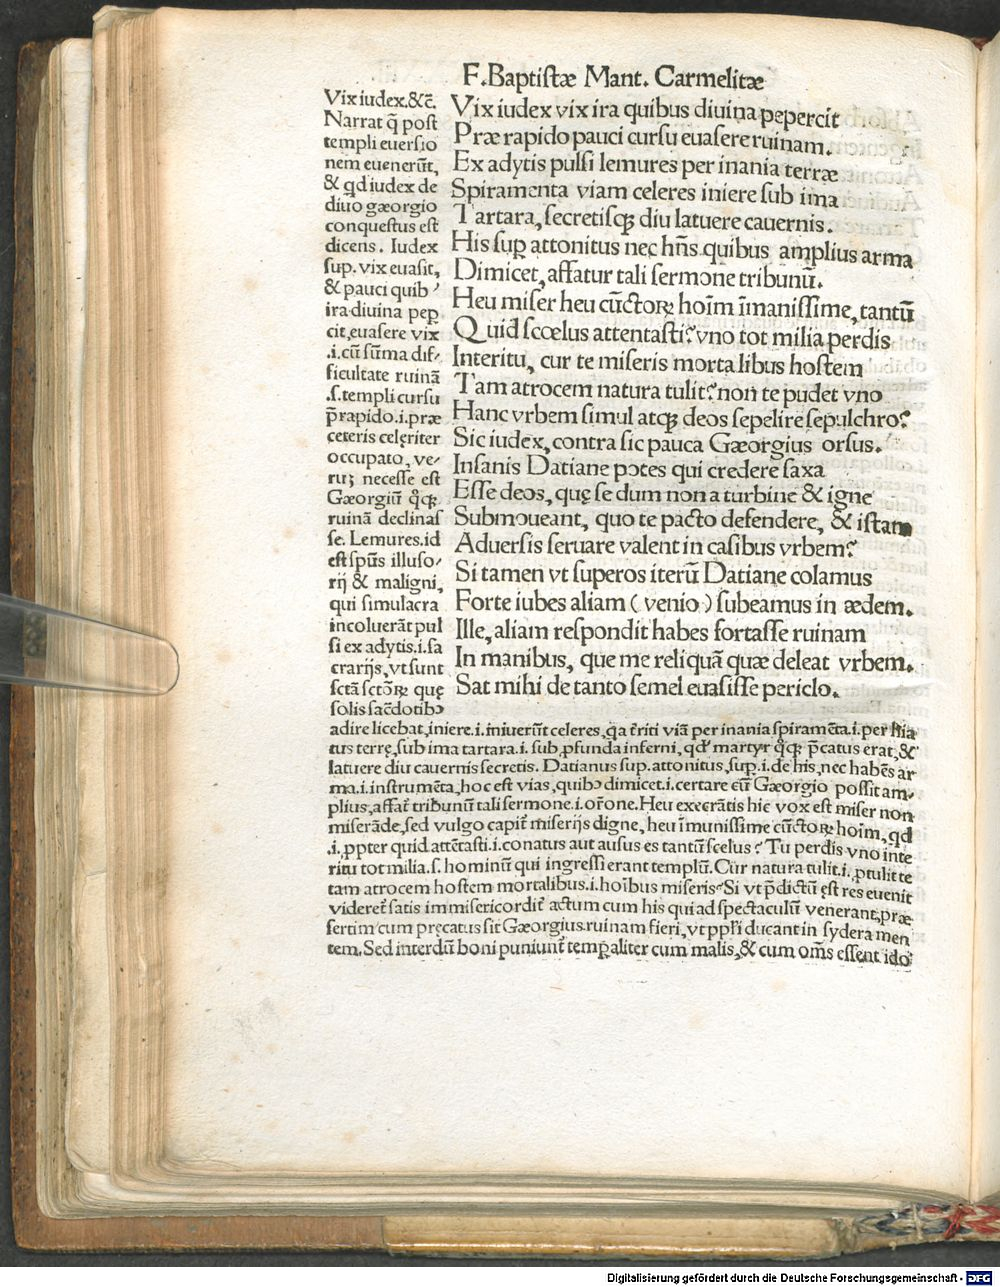 F. Baptistæ Mant. Carmelitæ
Vix iudex vix ira quibus diuina pepercit
Præ rapido pauci cursu euasere ruinam.
Ex adytis pulsi lemures per inania terræ
Spiramenta viam celeres iniere sub ima
Tartara, secretisqꝫ diu latuere cauernis.
His sup̱ attonitus nec hn̄s quibus amplius arma
Dimicet, affatur tali sermone tribunū.
Heu miser heu cūctoꝝ hoīm īmanissime, tantū
Quid scœlus attentasti? vno tot milia perdis
Interitu, cur te miseris mortalibus hostem
Tam atrocem natura tulit? non te pudet vno
Hanc vrbem simul atqꝫ deos sepelire sepulchro?
Sic iudex, contra sic pauca Gæorgius orsus.
Insanis Datiane potes qui credere saxa
Esse deos, quę se dum non a turbine & igne
Submoueant, quo te pacto defendere, & istam
Aduersis seruare valent in casibus vrbem?
Si tamen vt superos iterū Datiane colamus
Forte iubes aliam (venio) subeamus in ædem.
Ille, aliam respondit habes fortasse ruinam
In manibus, que me reliquā quæ deleat vrbem.
Sat mihi de tanto semel euasisse periclo.
Vix iudex. &c̄.
Narrat q̄ post
templi euersio
nem euenerūt,
& qd iudex de
diuo gæorgio
conquestus est
dicens. Iudex
sup. vix euasit,
& pauci quib᾽
ira diuina pep̱
cit, euasere vix
.i. cū sūma dif-
ficultate ruinā
.s. templi cursu
p̄rapido .i. præ
ceteris celęriter
occupato, ve-
rūꝫ necesse est
Gæorgiū q̊qꝫ
ruinā declinas
se. Lemures .id
est sp̄us illuso-
rij & maligni,
qui simulacra
incoluerāt pul
si ex adytis .i. sa
crarijs, vt sunt
sctā sctōꝝ quę
solis sac̄dotibꝰ
adire licebat, iniere .i. iniuerūt celeres, q̱a t̄riti viā per inania spiramēta .i. per hia
tus terrę, sub ima tartara .i. sub ꝓfunda inferni, qd᾽ martyr q̊qꝫ p̄catus erat, &
latuere diu cauernis secretis. Datianus sup. attonitus, sup̱ .i. de his, nec habēs ar
ma .i. instrumēta, hoc est vias, quibꝰ dimicet .i. certare cū Gæorgio possit am-
plius, affat᷑ tribunū tali sermone .i. or̄one. Heu execrātis hic vox est miser non
miserāde, sed vulgo capit᷑ miserijs digne, heu īmunissime cūctoꝝ hoīm, qd
.i. ꝓpter quid attētasti .i. conatus aut ausus es tantū scelus? Tu perdis vno inte
ritu tot milia .s. hominū qui ingressi erant templū. Cur natura tulit .i. ꝓtulit te
tam atrocem hostem mortalibus .i. hoībus miseris? Si vt p̄dictū ęst res euenit
videret᷑ satis immisericordit᷑ actum cum his qui ad spectaculū venerant, præ
sertim cum pręcatus sit Gæorgius ruinam fieri, vt pp̄li ducant in sydera men
tem. Sed interdū boni puniunt᷑ temp̱aliter cum malis, & cum om̄s essent ido
Digitalisierung gefördert durch die Deutsche Forschungsgemeinschaft - DFG